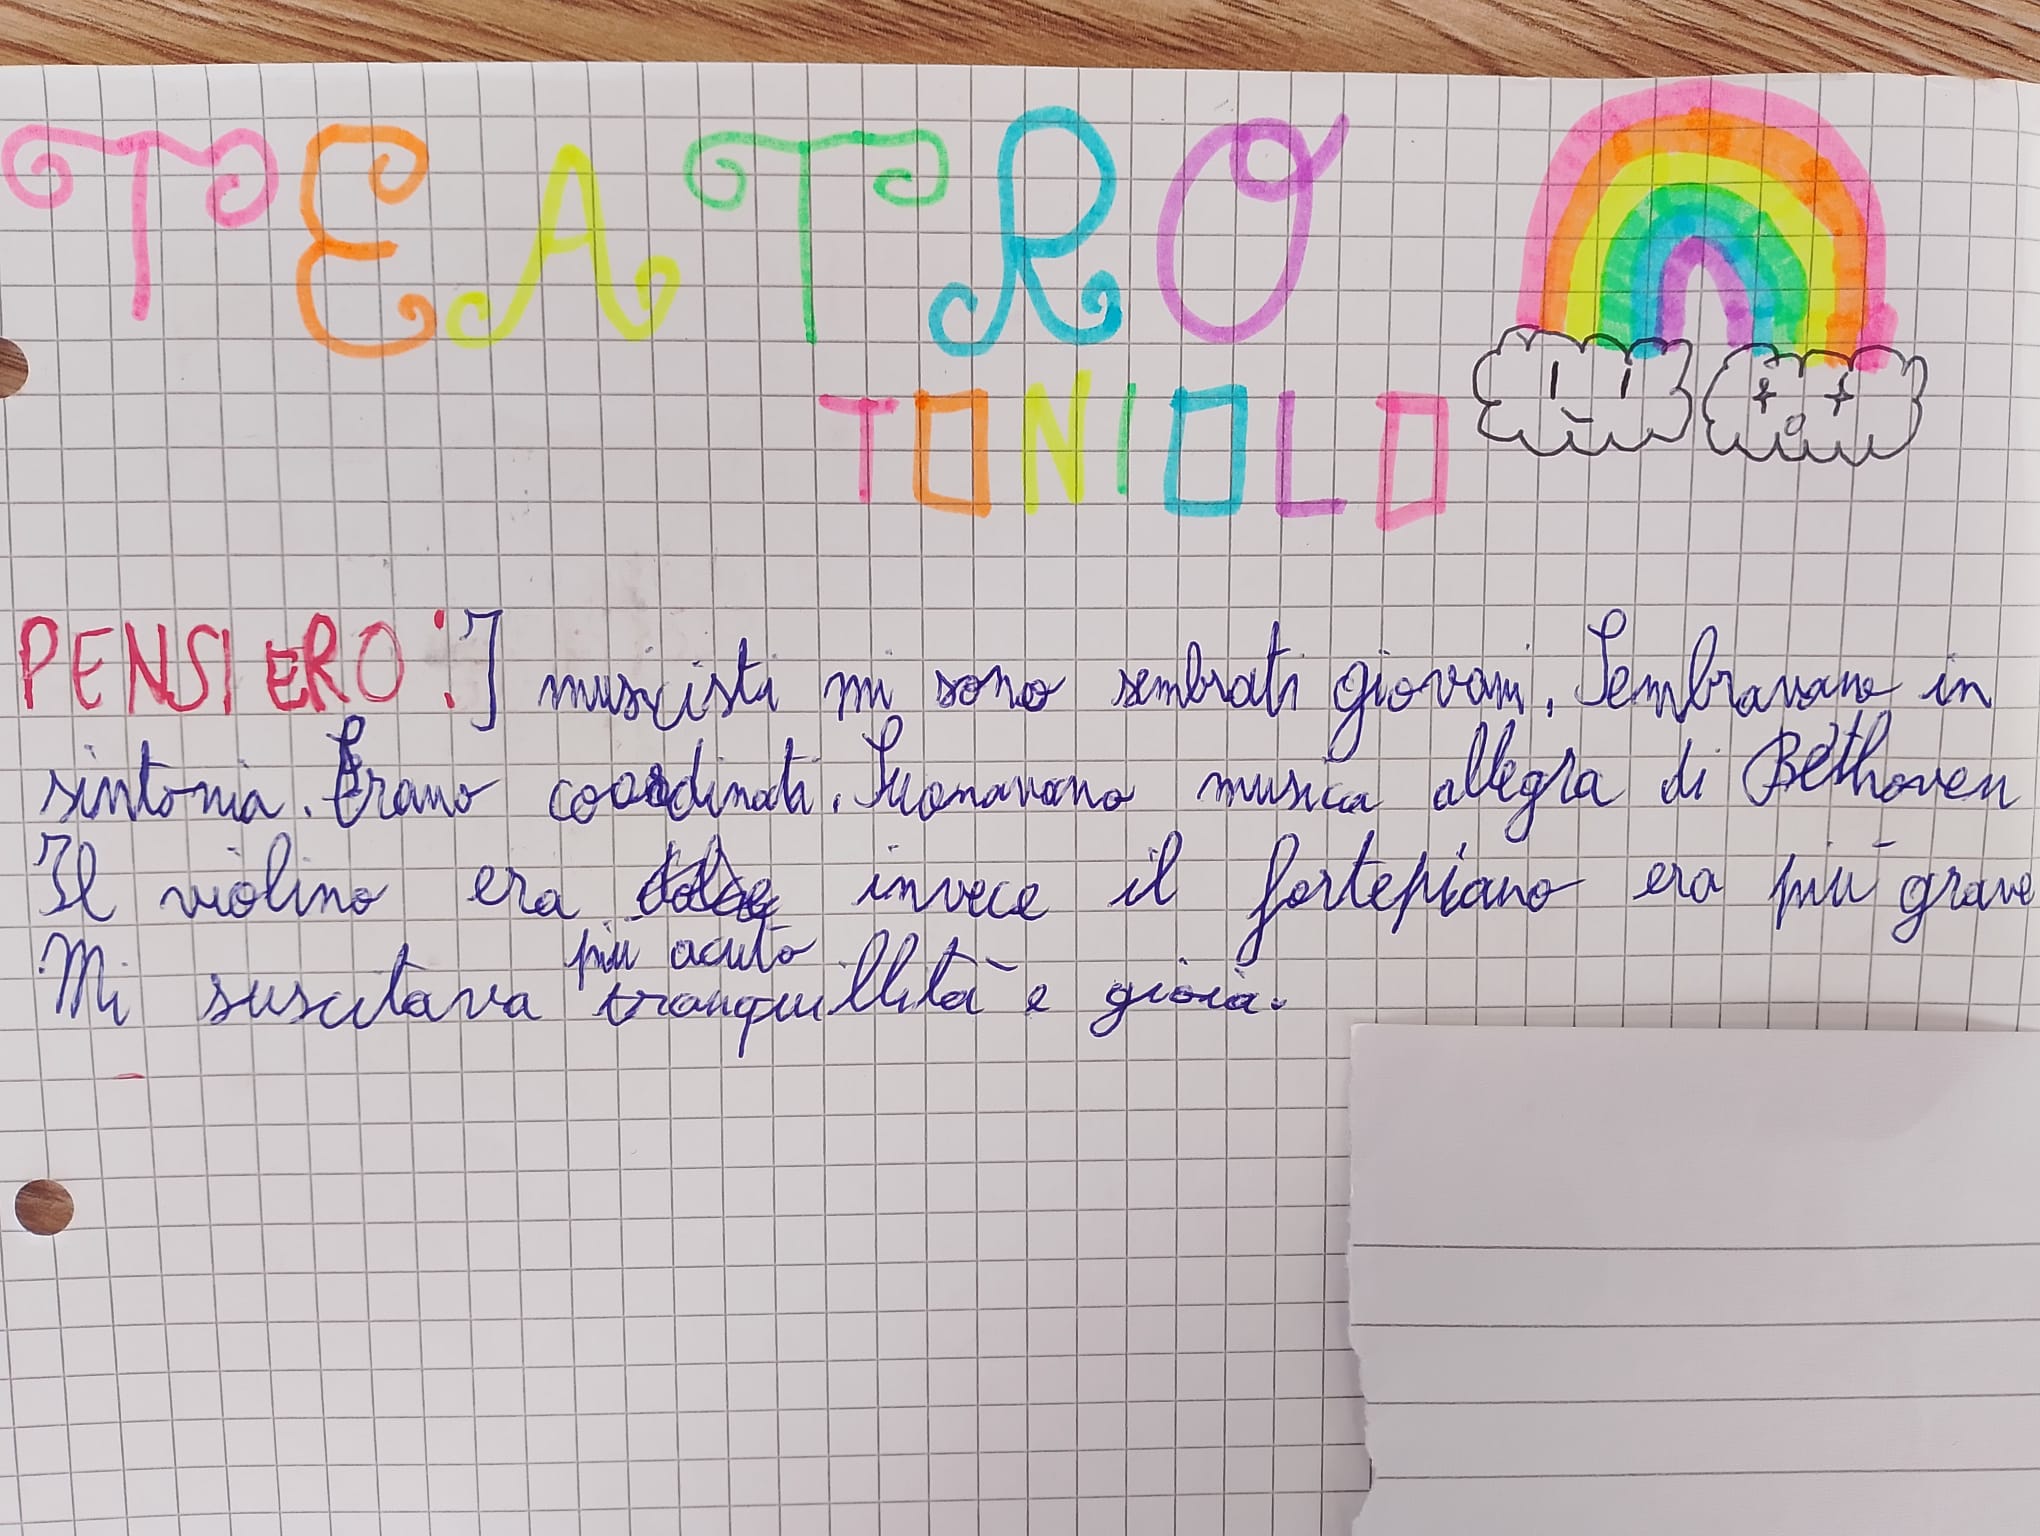 TEATRO
TONIOLO
PENSIERO: I musicisti mi sono sembrati giovani. Sembravano in
sintonia. Erano coordinati. Suonavano musica allegra di Bethoven
Il violino era invece il fortepiano era più grave
più acuto
Mi suscitava tranquillità e gioia.